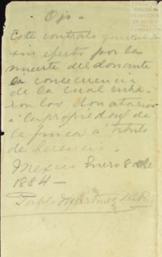 Ojo.
Este contrato quedó
sin efecto por la
muerte del donante
a consecuencia
de la cual entra
ron los donatarios
en la propiedad de
la finca a título
de herencia.
Mexico Enero 8 de
1884—
Martinez del R.